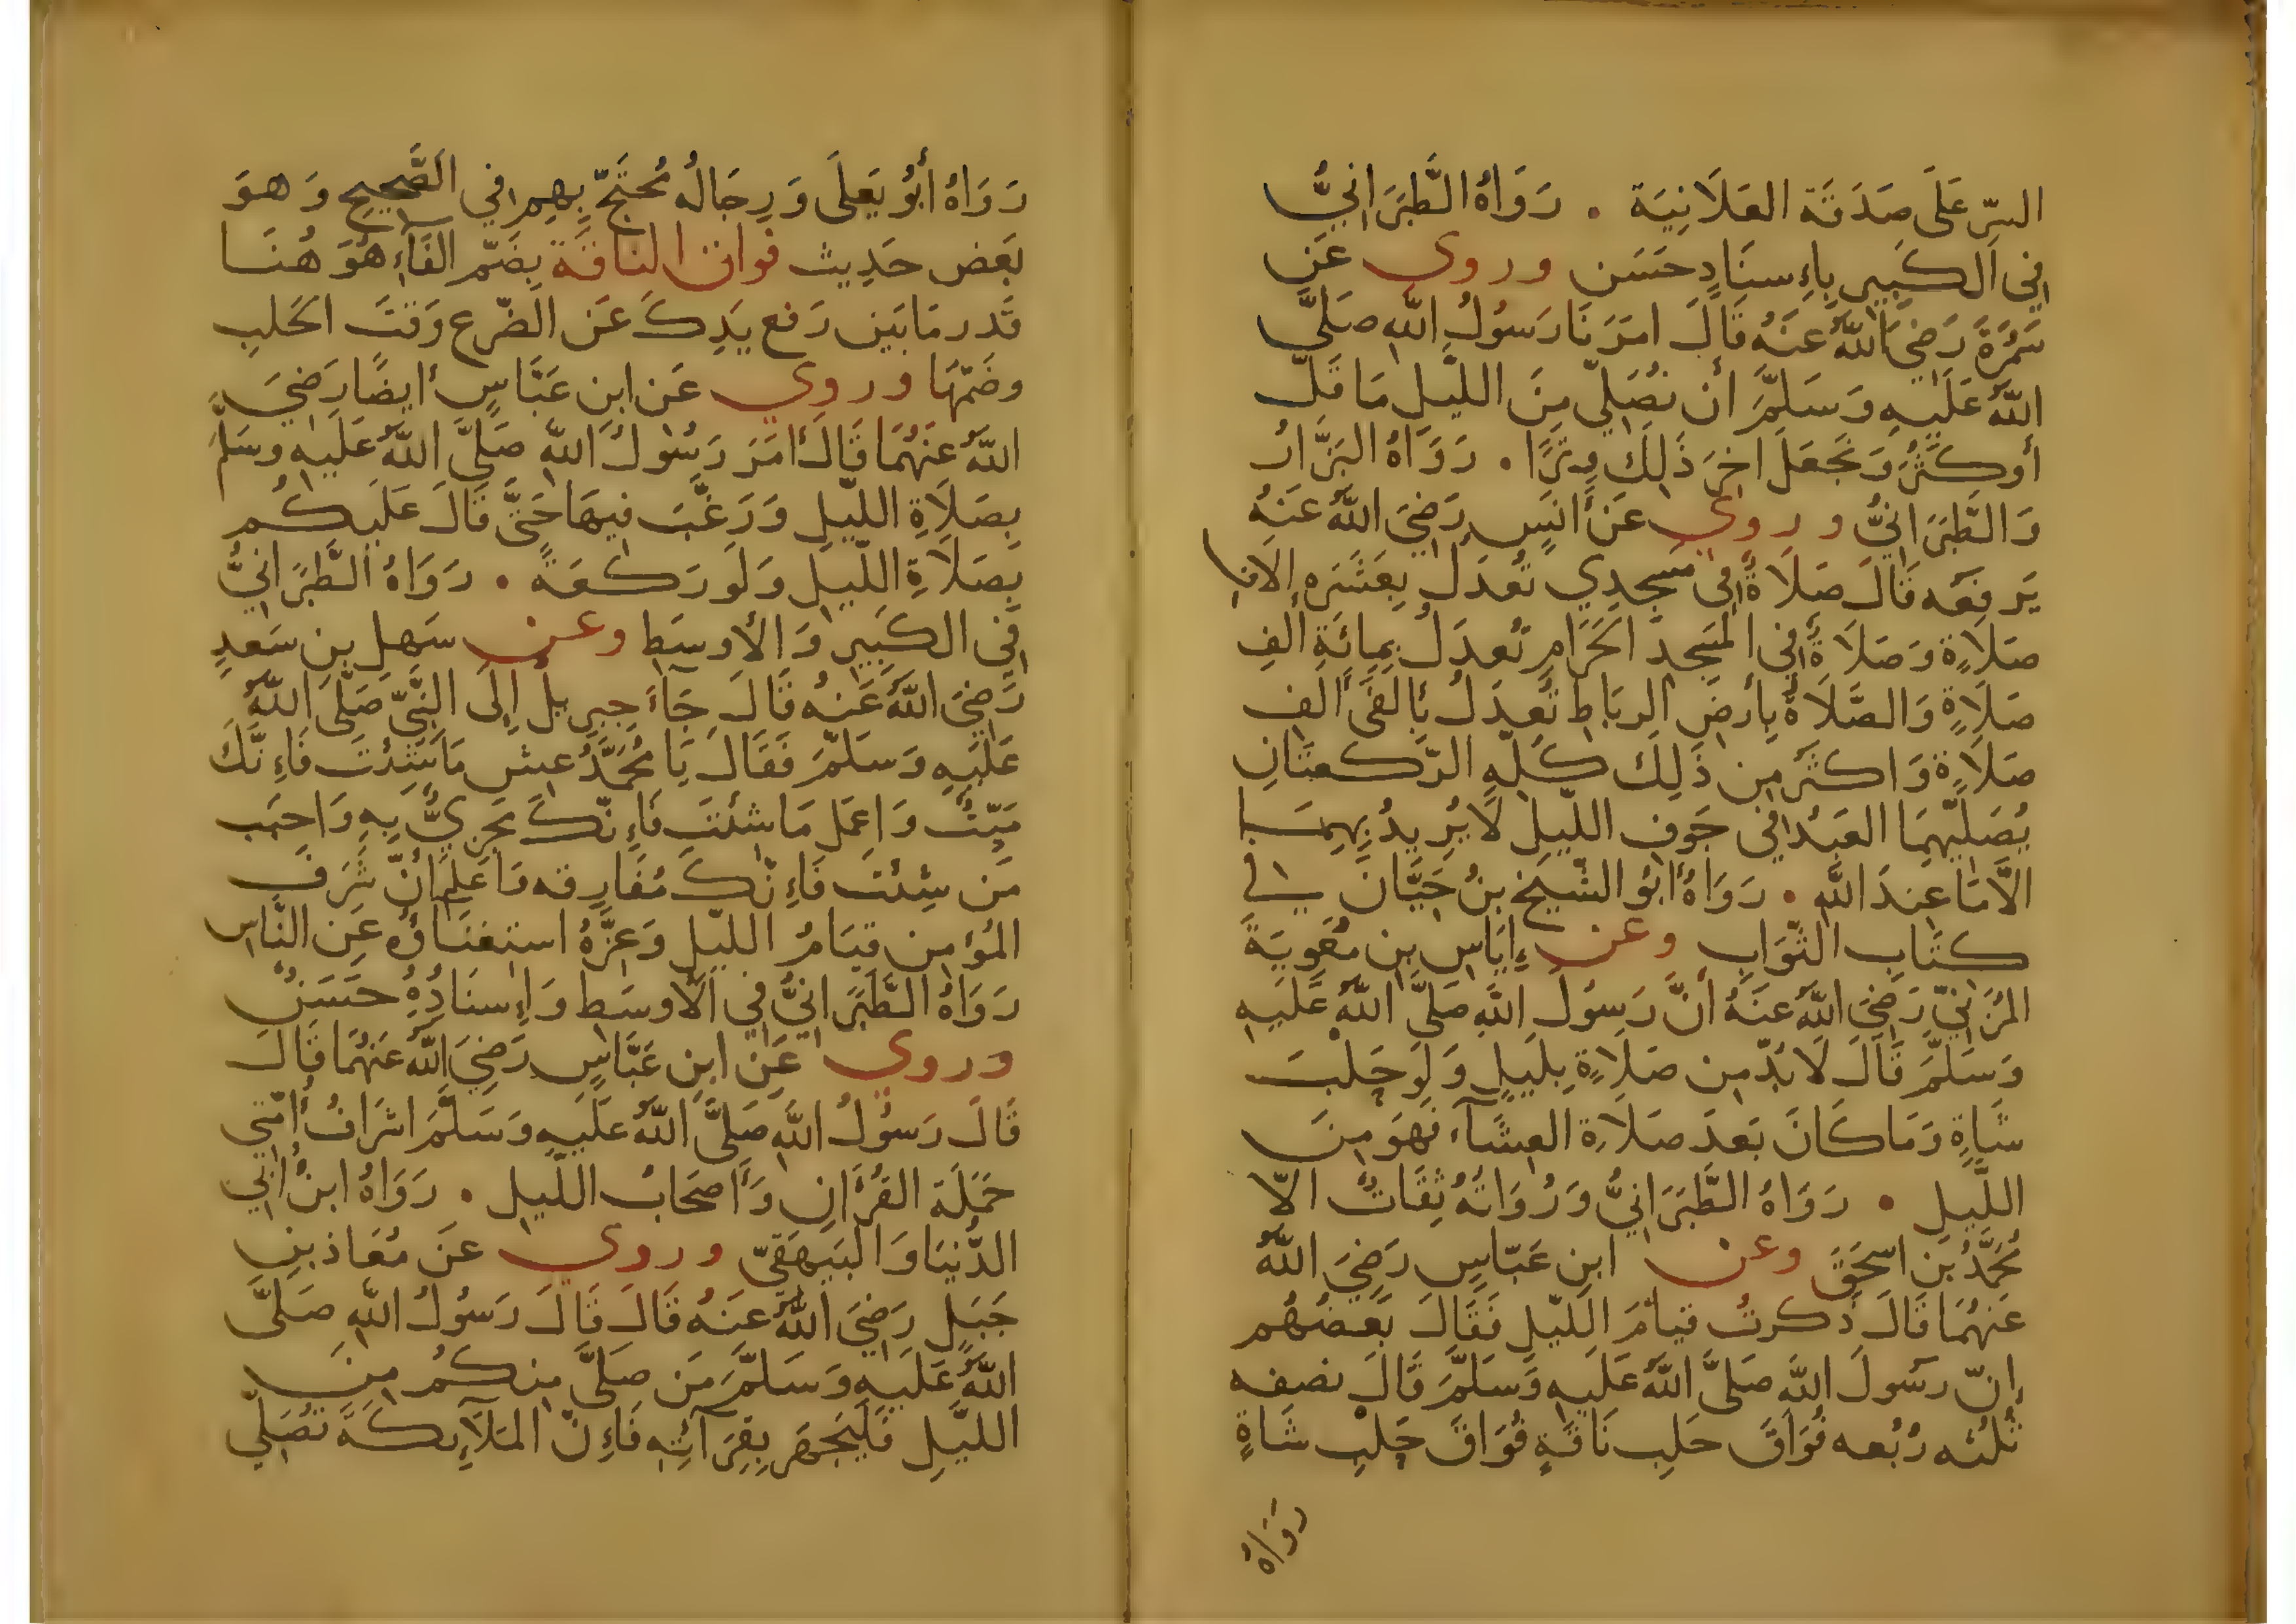 السِّرِّ عَلَى صَدَقَة العَلَانِيَة . رَوَاهُ الطَّبَرَانِيُّ
فِي الكَبِيرِ بِإِسنَادٍ حَسَن وروي عَن
سَمُرَةَ رَضِيَ اللَّهُ عَنهُ قَالَ امَرَنَا رَسُولُ اللَّهِ صَلَّى
اللَّهُ عَلَيهِ وَسَلَّمَ أن نُصَلِّي مِنَ اللَّيلِ مَا قَلَّ
أو كَثُرَ وَنَجعَلَ اخِرَ ذَلِكَ وِترًا . رَوَاهُ البَزَّارُ
وَالطَّبَرَانِيُّ وروي عَن أنَسٍ رَضِيَ اللَّهُ عَنهُ
يَرفَعه قَالَ صَلَاةٌ فِي مَسجِدِي تُعدَلُ بِعَشَرَه الافِ
صَلَاةٍ وَصَلَاةٌ فِي المَسجِد الحَرَامِ تُعدَلُ بِمِائَةِ ألفِ
صَلَاةٍ وَالصَّلَاةُ بِأرضِ الرِبَاطِ تُعدَلُ بِألفَي ألفِ
صَلَاةٍ وَاكثَر مِن ذَلِكَ كُلِّهِ الرَّكعَتَانِ
يُصَلِّيهِمَا العَبدُ فِي جَوفِ اللَّيلِ لَا يُرِيدُ بِهِمَا
الَّا مَا عِندَ اللَّهِ . رَوَاهُ ابُو الشَّيخِ بنُ حَيَّانَ في
كتَابِ الثَّوَابِ وعن إِيَاسِ بِن مُعَوِيَةَ
المُزَانِيِّ رَضِيَ اللَّهُ عَنهُ أنَّ رَسُولَ اللَّهِ صَلَّى اللَّهُ عَلَيهِ
وَسَلَّمَ قَالَ لَا بُدَّ مِن صَلَاةٍ بِلَيلٍ وَلَو حَلبَ
شَاةٍ وَمَا كَانَ بَعدَ صَلَاةِ العِشَآءِ فَهوَ مِنَ
اللَّيلِ . رَوَاهُ الطَّبَرَانِيُّ وَرُوَاتُهُ ثِقَاتٌ الّا
مُحَمَّدُ بنَ اسحَقَ وعن ابنِ عَبّاسٍ رَضِيَ اللَّهُ
عَنهُمَا قَالَ ذَكرتُ قيامَ اللّيلِ فَقَالَ بَعضُهُم
إِنّ رَسُولَ اللَّهِ صَلَّى اللَّهُ عَلَيهِ وَسَلَّمَ قَالَ نصفه
ثُلُثه رُبُعه فُوَاقَ حَلبِ نَاقَةٍ فُوَاقَ حَلبِ شَاةٍ
رَوَاهُ
رَوَاهُ أبُو يَعلَى وَرِجَالُه مُحتَجّ بِهِم فِي الصَّحِيحِ وَهوَ
بَعض حَدِيث فواق الناقَة بِضَمّ الفَآءِ هُوَ هُنَا
قَدر مَا بَين رَفع يَدِكَ عَنِ الضّرع وَقتَ الحَلبِ
وضَمّهَا وروي عَن ابنِ عَبَّاسٍ أيضًا رَضِيَ
اللَّهُ عَنهُمَا قَالَ أمَرَ رَسُولُ اللَّهِ صَلَّى اللَّهُ عَلَيهِ وسَلَّمَ
بِصَلَاةِ اللّيلِ وَرَغَّبَ فيهَا حَتَّى قَالَ عَلَيكُم
بِصَلَاةِ اللَّيلِ وَلَو رَكعَةً . رَوَاهُ الطَّبَرَانِيُّ
فِي الكَبِيرِ وَالأوسَطِ وعن سَهلِ بنِ سَعدٍ
رَضِيَ اللَّهُ عَنهُ قَالَ جَآءَ جِبرِيلُ إِلَى النَّبِيِّ صَلَّى اللَّهُ
عَلَيهِ وَسَلَّمَ فَقَالَ يَا مُحَمَّدُ عِش مَا شِئتَ فَإِنَّكَ
مَيّتٌ وَاعمَل مَا شئتَ فَإِنّكَ مَجزِيٌّ بِهِ وَاحبِب
مَن شِئتَ فَإِنّكَ مُفَارِقه وَاعلَم أنّ شَرَفَ
المُؤمِن قيَامُ اللَّيلِ وَعِزَّهُ استِغنَاؤُه عَنِ النّاسِ
رَوَاهُ الطَّبَرَانِيُّ فِي الأوسَطِ وَإِسنَادُهُ حَسَنٌ
وروي عَنِ ابنِ عَبَّاسٍ رَضِيَ اللَّهُ عَنهُمَا قَالَ
قَالَ رَسُولُ اللَّهِ صَلَّى اللَّهُ عَلَيهِ وَسَلَّمَ اشرَافُ أُمَّتِي
حَمَلَة القُرْآنِ وَأَصحَابُ اللَّيلِ . رَوَاهُ ابنُ أبِي
الدُّنيَا وَالبَيهَقِيّ وروي عَن مُعَاذ بنِ
جَبَلٍ رَضِيَ اللَّهُ عَنهُ قَالَ قَالَ رَسُولُ اللَّهِ صَلَّى
اللَّهُ عَلَيهِ وَسَلَّمَ مَن صَلَّى مِنكُم مِنَ
اللَّيلِ فَليَجهَر بِقِرَآئتِه فَإِنّ المَلَآئِكَةَ تُصَلِّي